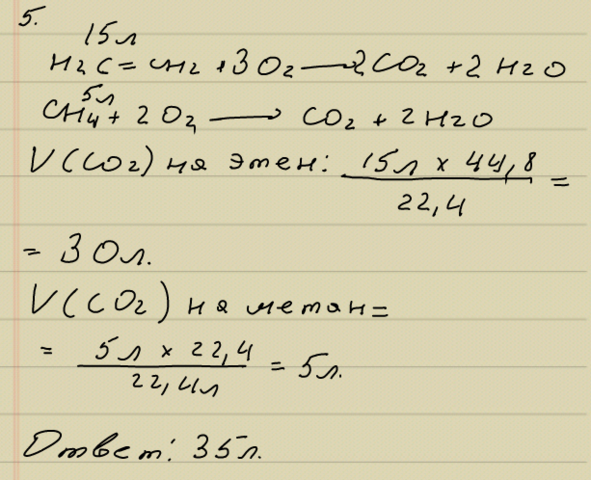 5.
15л
H2C=CH2+3O2→2CO2+2H2O
5л
CH4+2O2→CO2+2H2O
V(CO2) на этен: 15л x 44,8 / 22,4 =
= 30л.
V(CO2) на метан=
= 5л x 22,4 / 22,4л = 5л.
Ответ: 35л.